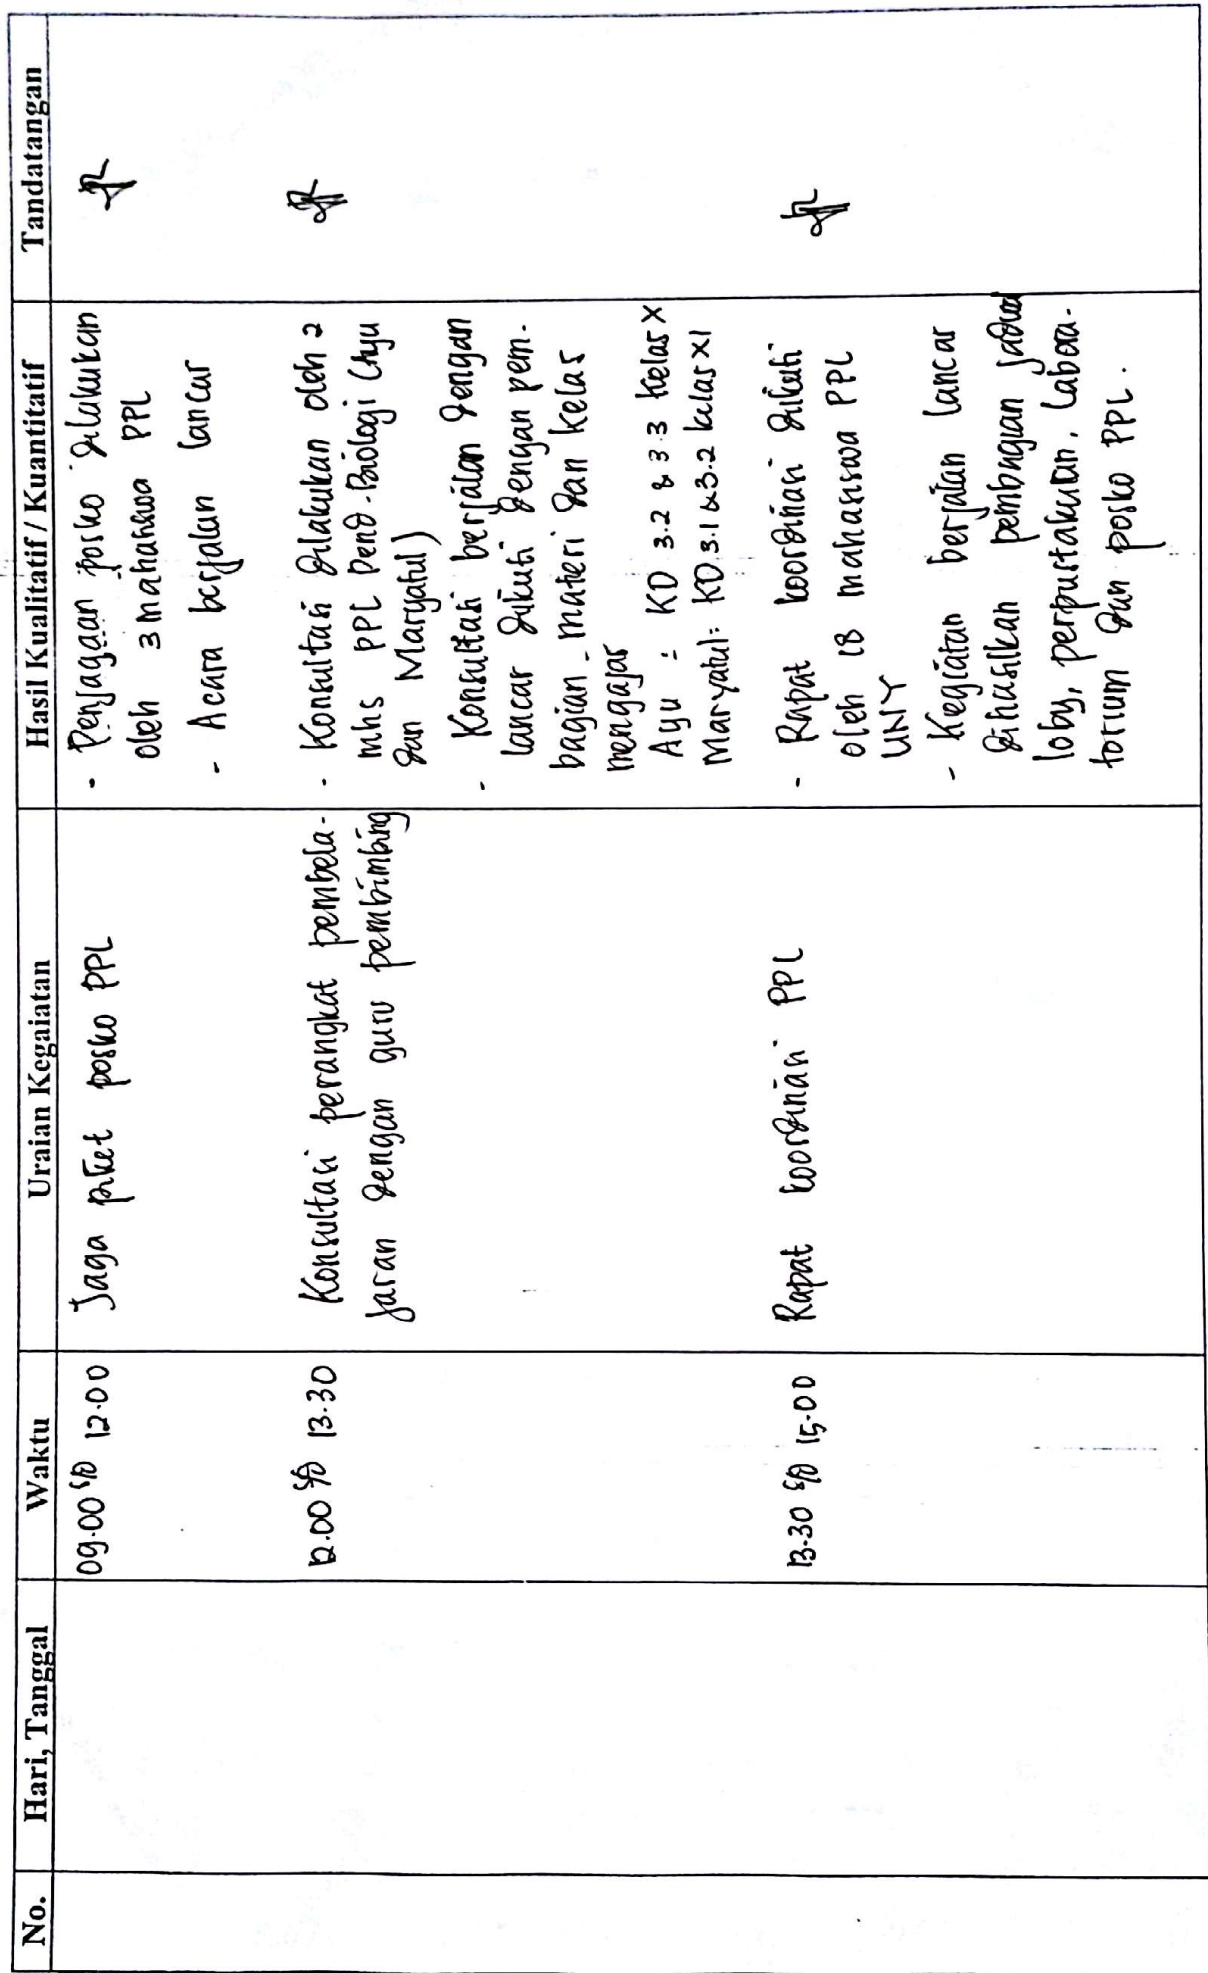 No. Hari, Tanggal Waktu Uraian Kegaiatan Hasil Kualitatif / Kuantitatif Tandatangan
09.00 s/d 12.00
Jaga piket posko PPL
- Penjagaan posko dilakukan
oleh 3 mahasiswa PPL
- Acara berjalan lancar
12.00 s/d 13.30
Konsultasi perangkat pembela-
jaran dengan guru pembimbing
- Konsultasi dilakukan oleh 2
mhs PPL Pend. Biologi (Ayu
dan Maryatul)
- Konsultasi berjalan dengan
lancar diikuti dengan pem-
bagian materi dan kelas
mengajar
Ayu : KD 3.2 & 3.3 Kelas X
Maryatul: KD.3.1 & 3.2 kelas XI
13.30 s/d 15.00
Rapat koordinasi PPL
- Rapat koordinasi diikuti
oleh 18 mahasiswa PPL
UNY
- Kegiatan berjalan lancar
dihasilkan pembagian jadwal
loby, perpustakaan, labora-
torium dan posko PPL.